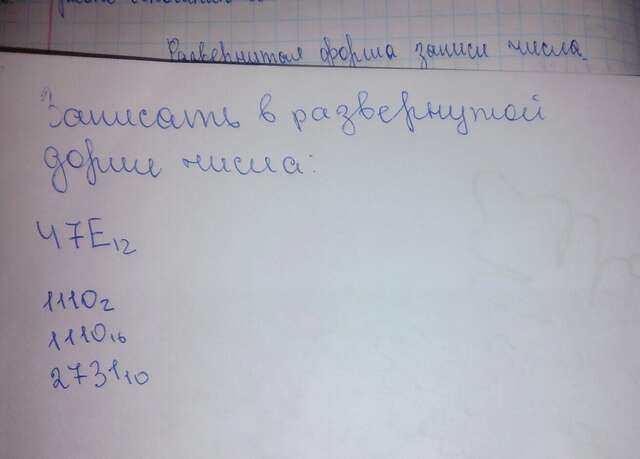 Развернутая форма записи числа.
Записать в развернутой
форме числа:
47E₁₂
1110₂
1110₁₆
2731₁₀